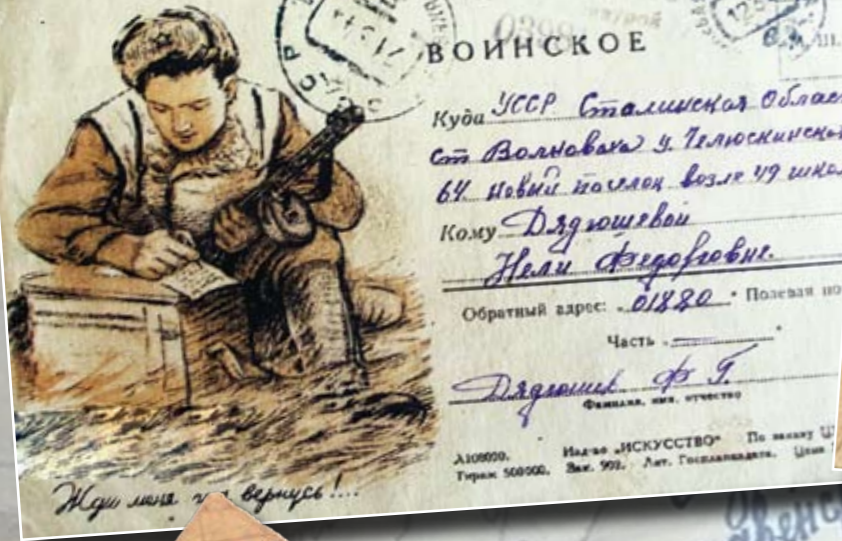 ВОИНСКОЕ
Куда УССР Сталинская Облас
ст Волноваха у. Челюскинская
64 Новый поселок возле 49 шко
Кому Дядюшевой
Нели Федоровне.
Обратный адрес: 01880 Полевая по
Часть
Дядюшев Ф Г.
Фамилия, имя, отчество
А108020. Изд-во „ИСКУССТВО" По заказу
Тираж 500000. Зак. 902. Лит. Госпланиздата. Цена
Жди меня вернусь!...